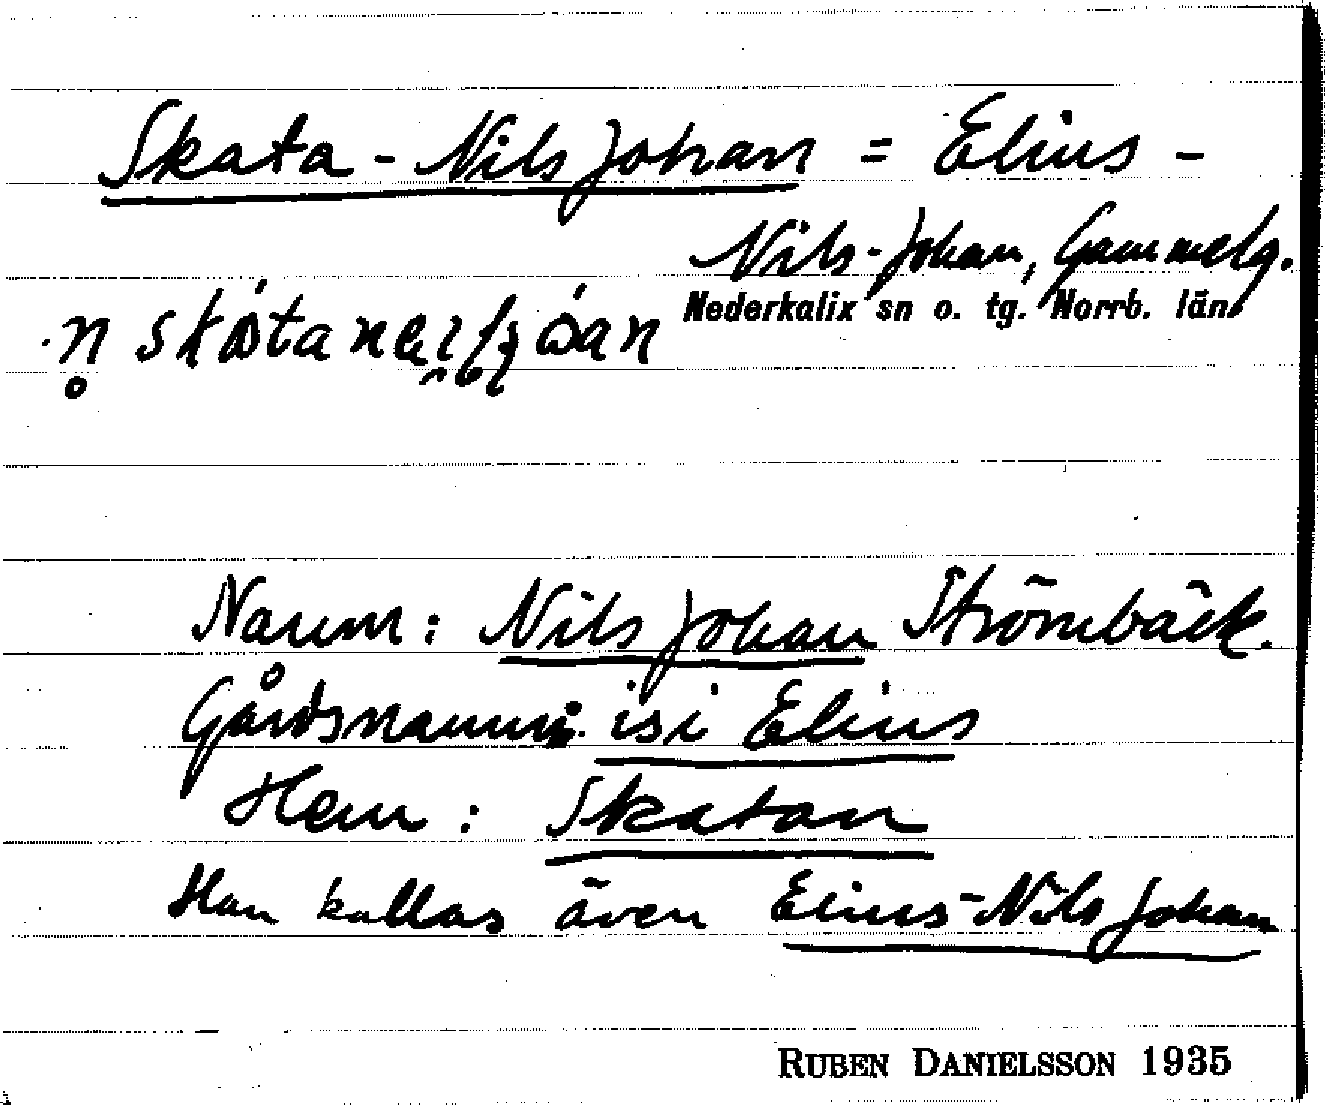 Skata - Nils Johan = Elius -
Nils-Johan, Gammelg.
Nederkalix sn o. tg. Norrb. län
Namn: Nils Johan Strömbäck.
Gårdsnamn: isi Elius
Hem: Skatan
Han kallas även Elius-Nils Johan
RUBEN DANIELSSON 1935